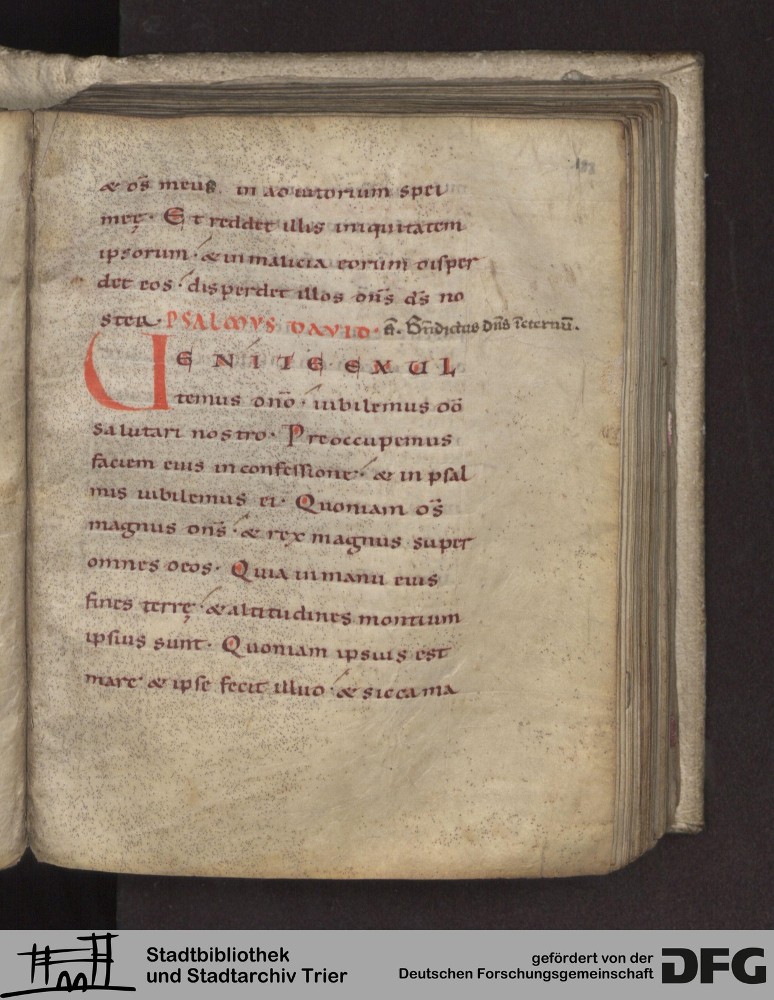 & ds̄ meus in adiutorium spei
meę · Et reddet illis iniquitatem
ipsorum · & in malicia eorum disper
det eos · disperdet illos dn̄s ds̄ no
ster · PSALMVS DAVID · ā. Bn̄dictus dn̄s īeternū.
UENITE EXUL
temus dn̄o · iubilemus dō
salutari nostro · Preoccupemus
faciem eius in confessione · & in psal
mis iubilemus ei · Quoniam ds̄
magnus dn̄s · & rex magnus super
omnes deos · Quia in manu eius
fines terrę · & altitudines montium
ipsius sunt · Quoniam ipsius est
mare & ipse fecit illud · & siccama
Stadtbibliothek
und Stadtarchiv Trier
gefördert von der
Deutschen Forschungsgemeinschaft
DFG